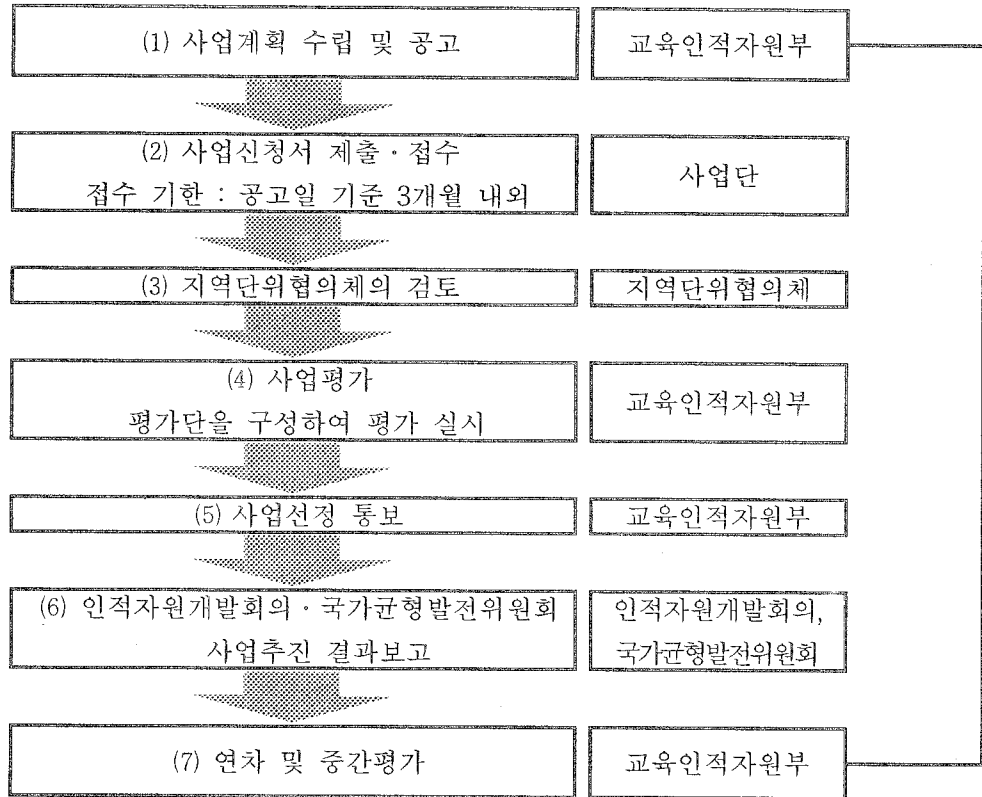 (1) 사업계획 수립 및 공고
교육인적자원부
(2) 사업신청서 제출·접수
접수 기한 : 공고일 기준 3개월 내외
사업단
(3) 지역단위협의체의 검토
지역단위협의체
(4) 사업평가
평가단을 구성하여 평가 실시
교육인적자원부
(5) 사업선정 통보
교육인적자원부
(6) 인적자원개발회의·국가균형발전위원회
사업추진 결과보고
인적자원개발회의,
국가균형발전위원회
(7) 연차 및 중간평가
교육인적자원부